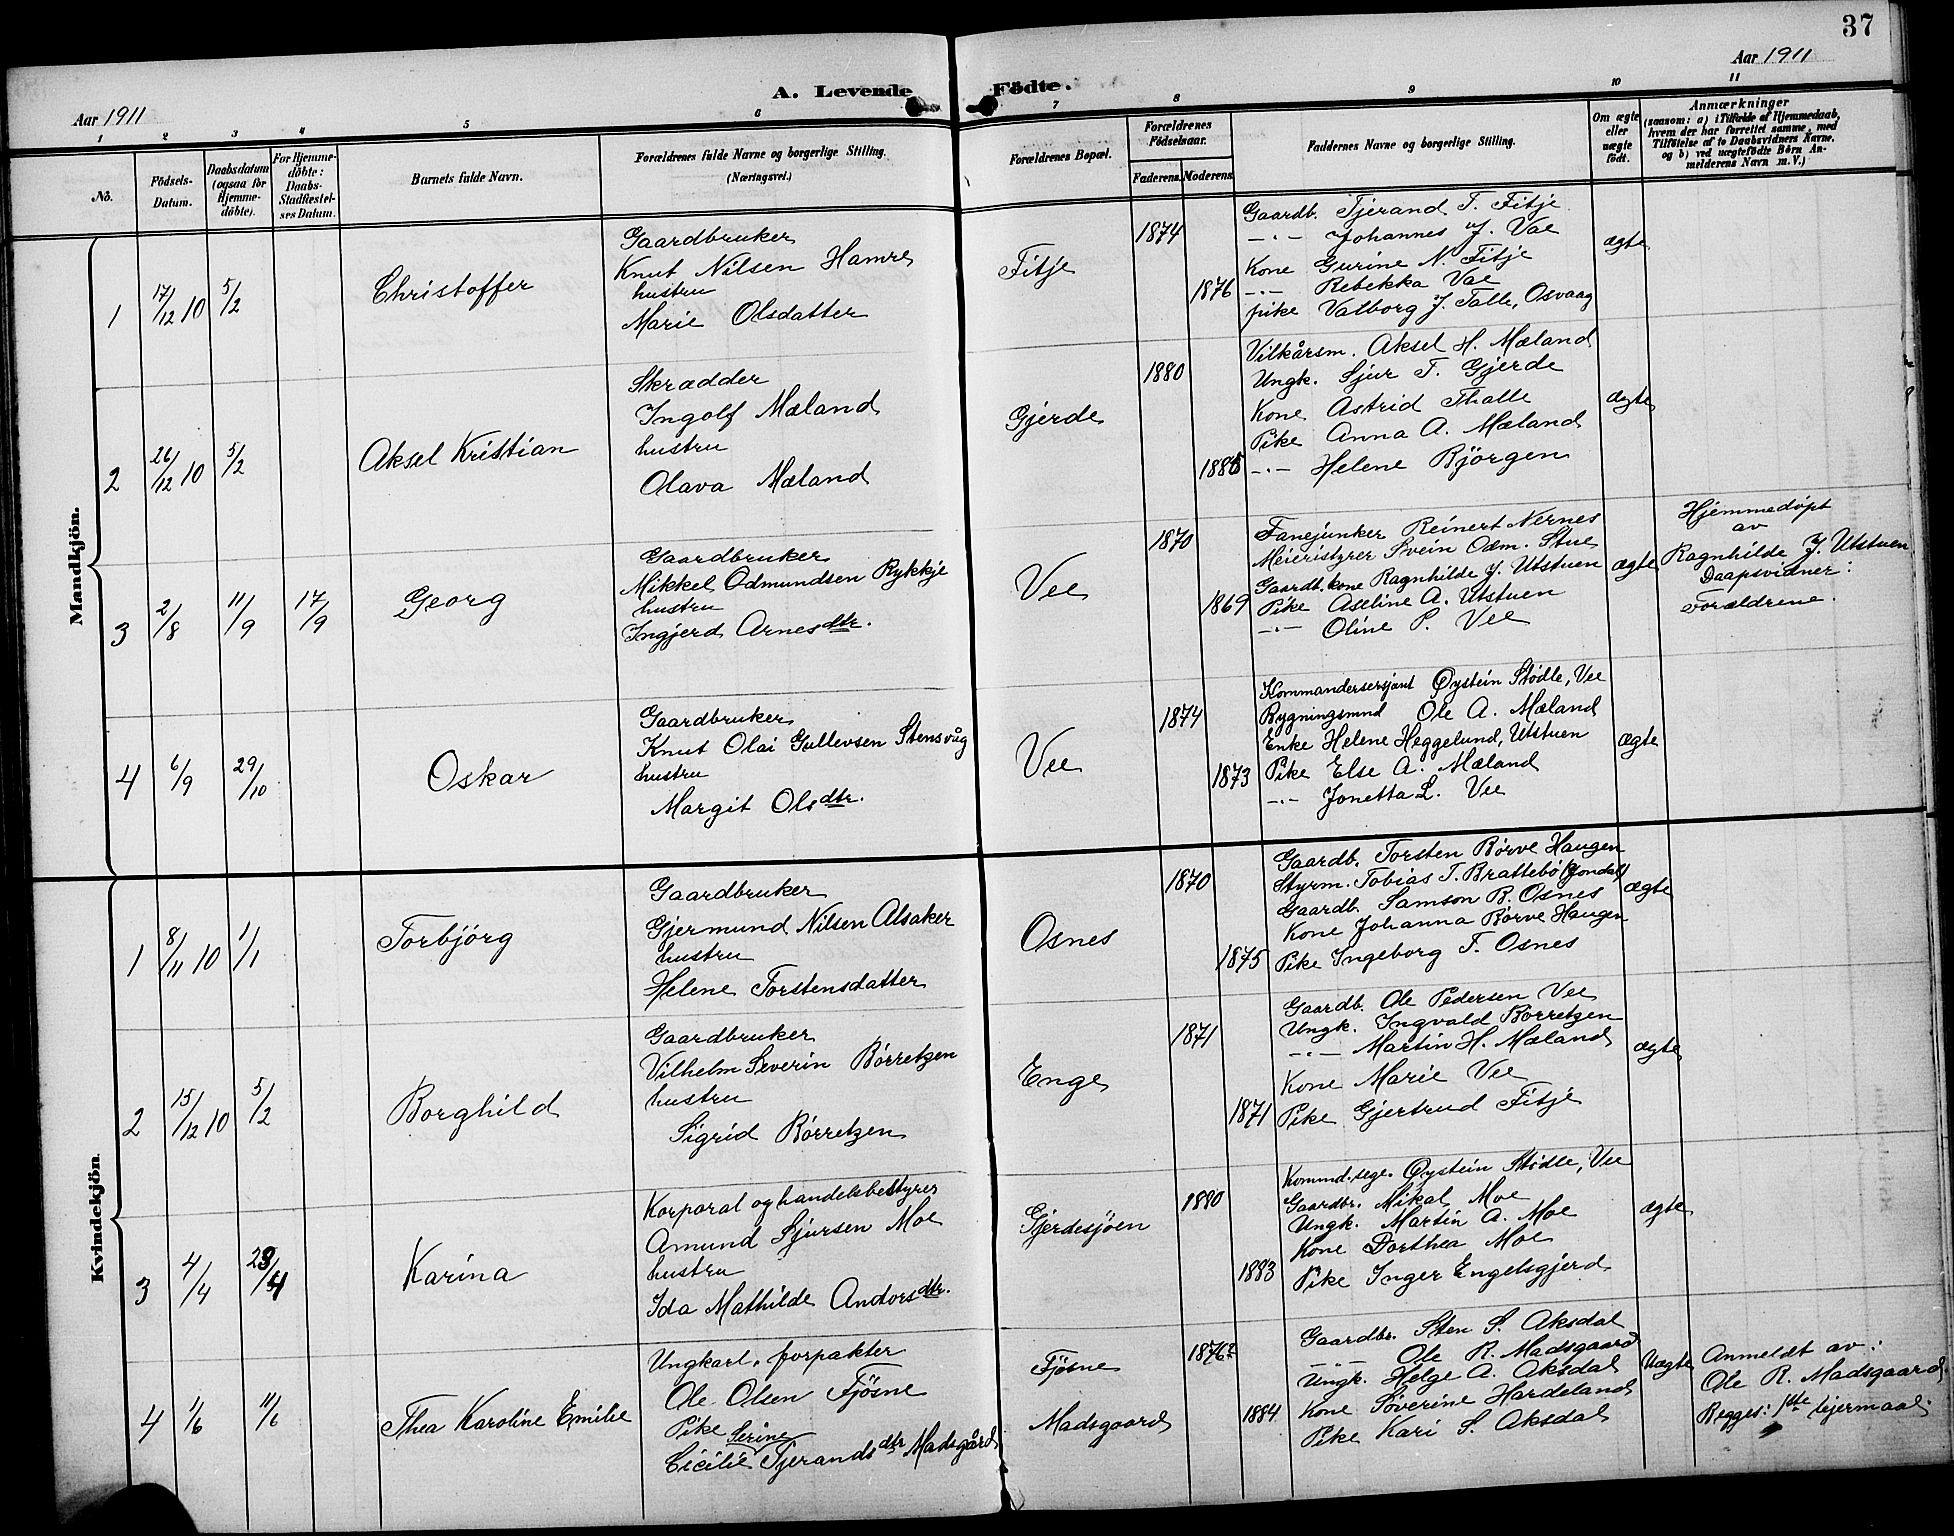 37
Aar 1911
A. Levende Födte.
Aar 1911
1 2 3 4 5 6 7 8 9 10 11
No.
Födsels-Datum.
Daabsdatum (ogsaa for Hjemme-döbte).
For Hjemme-döbte: Daabs-Stadfæstel-ses Datum.
Barnets fulde Navn.
Forældrenes fulde Navne og borgerlige Stilling.
(Næringsvei.)
Forældrenes Bopæl.
Forældrenes Födselsaar.
Faderens. Moderens.
Faddernes Navne og borgerlige Stilling.
Om ægte eller uægte födt.
Anmærkninger
(saasom: a) i Tilfælde af Hjemmedaab,
hvem der har forrettet samme, med
Tilföielse af to Daabsvidners Navne,
og b) ved uægtefödte Börn An-
melderens Navn m. V.)
Mandkjön.
1 17/12 10 5/2 Christoffer
Gaardbruker
Knut Nilsen Hamre
hustru
Marie Olsdatter
Fitje
1874
1876
Gaardb. Tjerand T. Fitje
-"- Johannes J. Vae
Kone Gurine N. Fitje
-"- Rebekka Vae
pike Valborg J. Talle, Osvaag
ægte
2 26/12 10 5/2 Aksel Kristian
Skrædder
Ingolf Mæland
hustru
Olava Mæland
Gjerde
1880
1885
Vilkårsm. Aksel H. Mæland
Ungk. Sjur T. Gjerde
Kone Astrid Thalle
Pike Anna A. Mæland
-"- Helene Bjørgen
ægte
3 2/8 11/9 17/9 Georg
Gaardbruker
Mikkel Odmundsen Rykkje
hustru
Ingjerd Arnesdtr.
Vee
1870
1869
Fanejunker Reinert Nernes
Meieristyrer Svein Odm. Stue
Gaardb. kone Ragnhilde J. Utstuen
Pike Aseline A. Utstuen
-"- Oline P. Vee
ægte
Hjemmedøpt
av
Ragnhilde J. Utstuen
Daapsvidner:
Forældrene.
4 6/9 29/10 Oskar
Gaardbruker
Knut Olai Gullevsen Stensvåg
hustru
Margit Olsdtr.
Vee
1874
1873
Kommandersersjant Øystein Stødle, Vee
Bygningsmnd Ole A. Mæland
Enke Helene Heggelund, Utstuen
Pike Else A. Mæland
-"- Jonetta L. Vee
ægte
Kvindekjön.
1 8/11 10 1/1 Torbjörg
Gaardbruker
Gjermund Nilsen Alsaker
hustru
Helene Torstensdatter
Osnes
1870
1875
Gaardb. Torsten Børve Haugen
Styrm. Tobias T. Brattebø (Jondal)
Gaardb. Samson B. Osnes
Kone Johanna Børve Haugen
Pike Ingeborg T. Osnes
ægte
2 15/12 10 5/2 Borghild
Gaardbruker
Vilhelm Severin Børretzen
hustru
Sigrid Børretzen
Enge
1871
1871
Gaardb. Ole Pedersen Vee
Ungk. Ingvald Børretzen
-"- Martin H. Mæland
Kone Marie Vee
Pike Gjertrud Fitje
ægte
3 4/4 Karina
Korporal og handelsbestyrer
Amund Sjursen Moe
hustru
Ida Mathilde Andorsdtr.
Gjerdesjøen
1880
1883
Kommd.sege. Øystein Stødle, Vee
Gaardbr. Mikal Moe
Ungk. Martin A. Moe
Kone Dorthea Moe
Pike Inger Engelsgjerd
ægte
4 1/6 11/6 Thea Karoline Emilie
Ungkarl, forpakter
Ole Olsen Fjøsne
Pike Serine
Cicilie Tjerandsdtr Madsgård
Fjøsne
Madsgaard
1876?
1884
Gaardbr. Sten S. Aksdal
-"- Ole R. Madsgaard
Ungk. Helge A. Aksdal
Kone Søverine Hardeland
Pike Kari S. Aksdal
Uægte
Anmeldt av:
Ole R. Madsgaard
Begges: 1ste leiermaal.